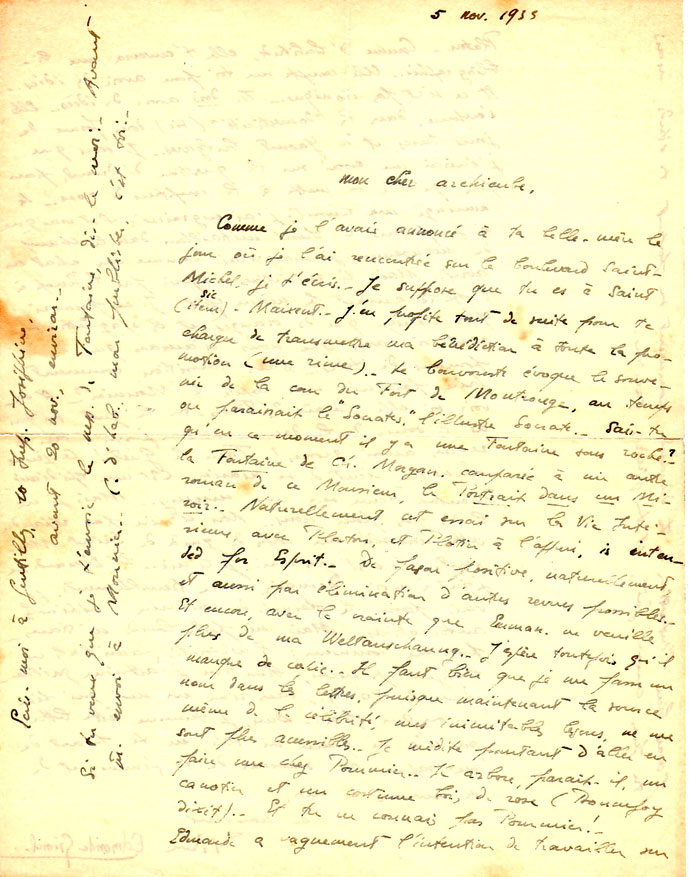 5 nov. 1935
mon cher archicube,
Comme je l'avais annoncé à ta belle-mère le
jour où je l'ai rencontrée sur le boulevard Saint-
Michel, je t'écris.- Je suppose que tu es à Saint
sic
(item) - Maixent.- J'en profite tout de suite pour te
charger de transmettre ma bénédiction à toute la pro-
motion (une rime).- Le bonvouste évoque le souve-
nir de la cour du Fort de Montrouge, au temps
où paraissait le "Socrates", l'illustre Socrate.- Sais-tu
qu'en ce moment il y a une Fontaine sous roche?
la Fontaine de Ch. Morgan, comparée à un autre
roman de ce Monsieur, le Portrait dans un Mi-
roir.. Naturellement cet essai sur la Vie Inté-
rieure, avec Platon, et Plotin à l'affût, is inten-
ded for Esprit.- De façon positive, naturellement,
et aussi par élimination d'autres revues possibles.-
Et encore, avec la crainte que Emman. ne veuille
plus de ma Weltanschauung.- J'espère toutefois qu'il
manque de copie.. Il faut bien que je me fasse un
nom dans les lettres, puisque maintenant la source
même de la célébrité, mes inimitables leçons, ne me
sont plus accessibles.. Je médite pourtant d'aller en
faire une chez Pommier.. Il arbore, paraît-il, un
canotier et un costume bois de rose (Bonnefoy
dixit).- Et tu ne connais pas Pommier!-
Edmonde a vaguement l'intention de travailler sur
Ecris-moi à Gentilly, 10 Imp. Joséphine,
avant 20 nov. environ.-
Si tu veux que je t'envoie le ms. de Fontaine, dis-le moi:- Avant
m. envoi à Mounier.- C. d'hab. mon publiciste, c'est toi:-